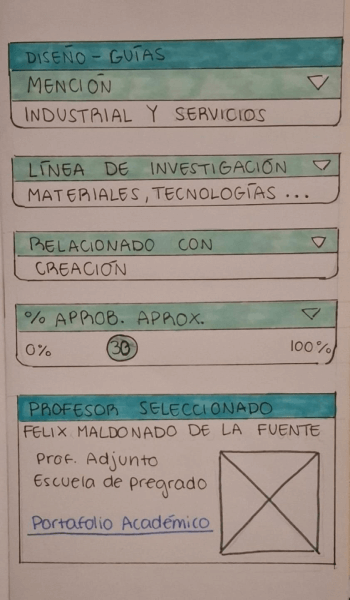 DISEÑO - GUÍAS
MENCIÓN
INDUSTRIAL Y SERVICIOS
LÍNEA DE INVESTIGACIÓN
MATERIALES, TECNOLOGÍAS ...
RELACIONADO CON
CREACIÓN
% APROB. APROX.
0% 30 100%
PROFESOR SELECCIONADO
FELIX MALDONADO DE LA FUENTE
Prof. Adjunto
Escuela de Pregrado
Portafolio Académico